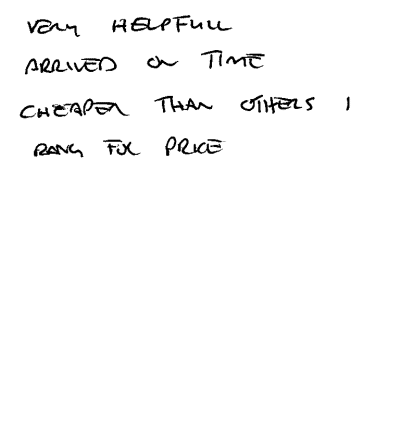 VERY HELPFULL
ARRIVED ON TIME
CHEAPER THAN OTHERS I
RANG FOR PRICE